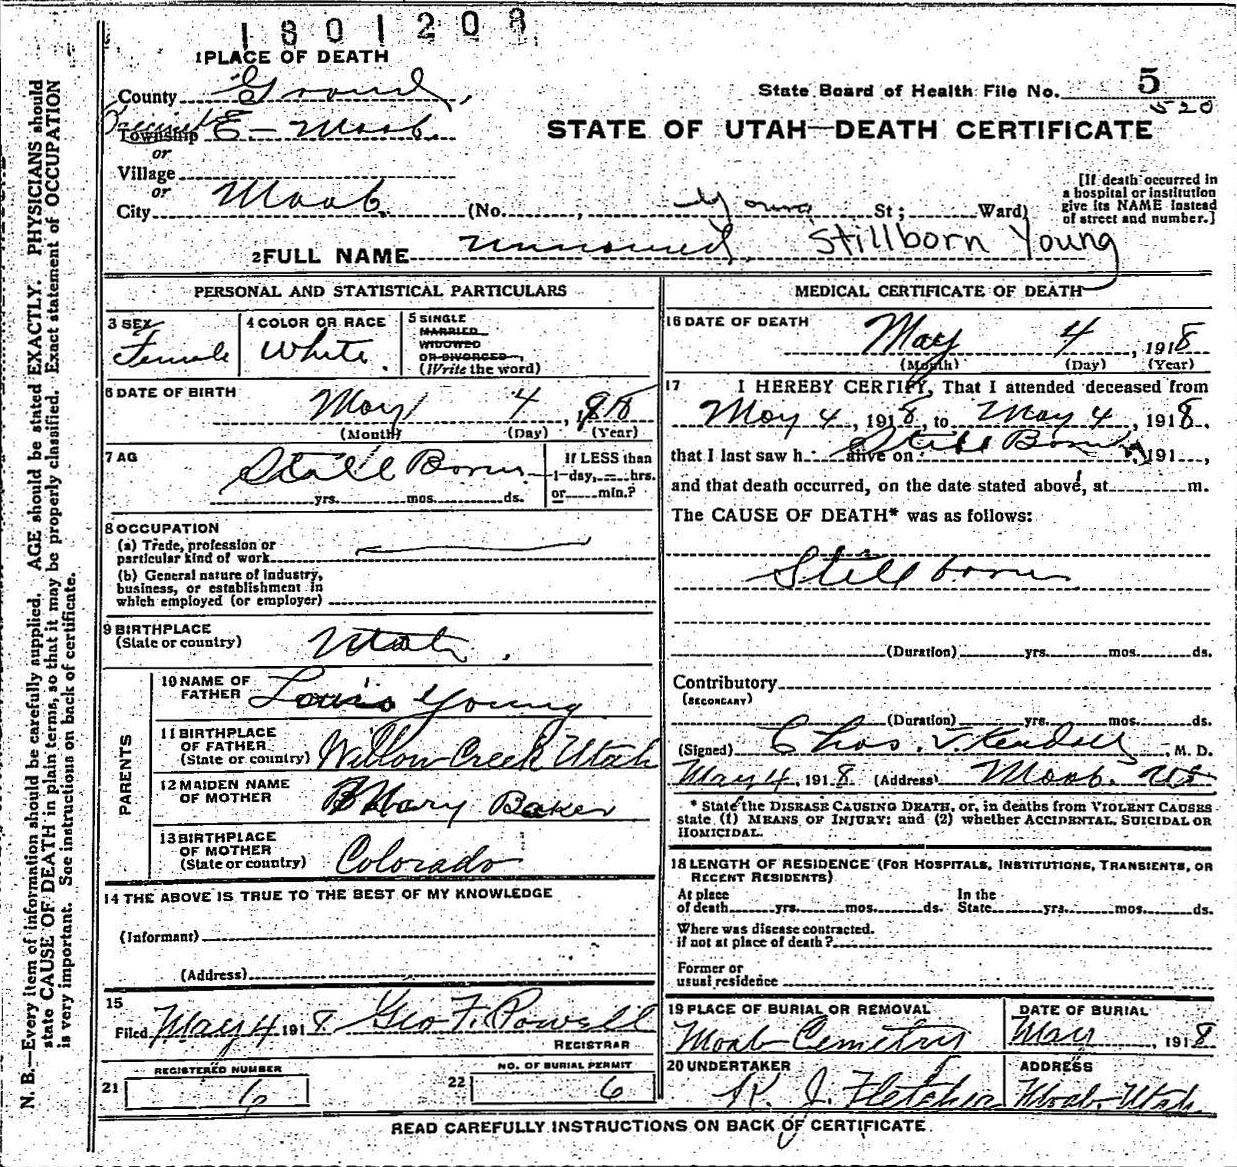 1801208
1 PLACE OF DEATH
County Grand,
State Board of Health File No. 5
520
Precinct Township E - Moab.
STATE OF UTAH—DEATH CERTIFICATE
or
Village
or
City Moab. (No. , Young St; Ward)
[If death occurred in
a hospital or institution
give its NAME instead
of street and number.]
2 FULL NAME unnamed. Stillborn Young
PERSONAL AND STATISTICAL PARTICULARS
3 SEX
Female
4 COLOR OR RACE
White.
5 SINGLE
MARRIED
WIDOWED
OR DIVORCED
(Write the word)
6 DATE OF BIRTH
May 4, 1918
(Month) (Day) (Year)
7 AG
Still Born
yrs. mos. ds.
If LESS than
1-day, — hrs.
or min.?
8 OCCUPATION
(a) Trede, profession or
particular kind of work
(b) General nature of industry,
business, or establishment in
which employed (or employer)
9 BIRTHPLACE
(State or country) Utah.
PARENTS
10 NAME OF
FATHER Louis Young
11 BIRTHPLACE
OF FATHER
(State or country) Willow Creek Utah
12 MAIDEN NAME
OF MOTHER Mary Baker
13 BIRTHPLACE
OF MOTHER
(State or country) Colorado
14 THE ABOVE IS TRUE TO THE BEST OF MY KNOWLEDGE
(Informant)
(Address)
15
Filed May 4 1918 Geo F. Powell
REGISTRAR
21 REGISTERED NUMBER
6
22 NO. OF BURIAL PERMIT
6
MEDICAL CERTIFICATE OF DEATH
16 DATE OF DEATH
May 4, 1918
(Month) (Day) (Year)
17 I HEREBY CERTIFY, That I attended deceased from
May 4, 1918, to May 4, 1918,
that I last saw h alive on Still Born, 191 ,
and that death occurred, on the date stated above, at m.
The CAUSE OF DEATH* was as follows:
Still born
(Duration) yrs. mos. ds.
Contributory
(SECONDARY)
(Duration) yrs. mos. ds.
(Signed) Chas. V. Kendall, M. D.
May 4, 1918 (Address) Moab. Ut
* State the DISEASE CAUSING DEATH, or, in deaths from VIOLENT CAUSES
state (1) MEANS OF INJURY; and (2) whether ACCIDENTAL, SUICIDAL OR
HOMICIDAL.
18 LENGTH OF RESIDENCE (FOR HOSPITALS, INSTITUTIONS, TRANSIENTS, OR
RECENT RESIDENTS)
At place
of death yrs. mos. ds.
In the
State yrs. mos. ds.
Where was disease contracted.
if not at place of death?
Former or
usual residence
19 PLACE OF BURIAL OR REMOVAL
Moab Cemetry
DATE OF BURIAL
May, 1918
20 UNDERTAKER
K. J. Fletcher
ADDRESS
Moab. Utah.
READ CAREFULLY INSTRUCTIONS ON BACK OF CERTIFICATE.
N. B.—Every item of information should be carefully supplied. AGE should be stated EXACTLY. PHYSICIANS should
state CAUSE OF DEATH in plain terms, so that it may be properly classified. Exact statement of OCCUPATION
is very important. See instructions on back of certificate.